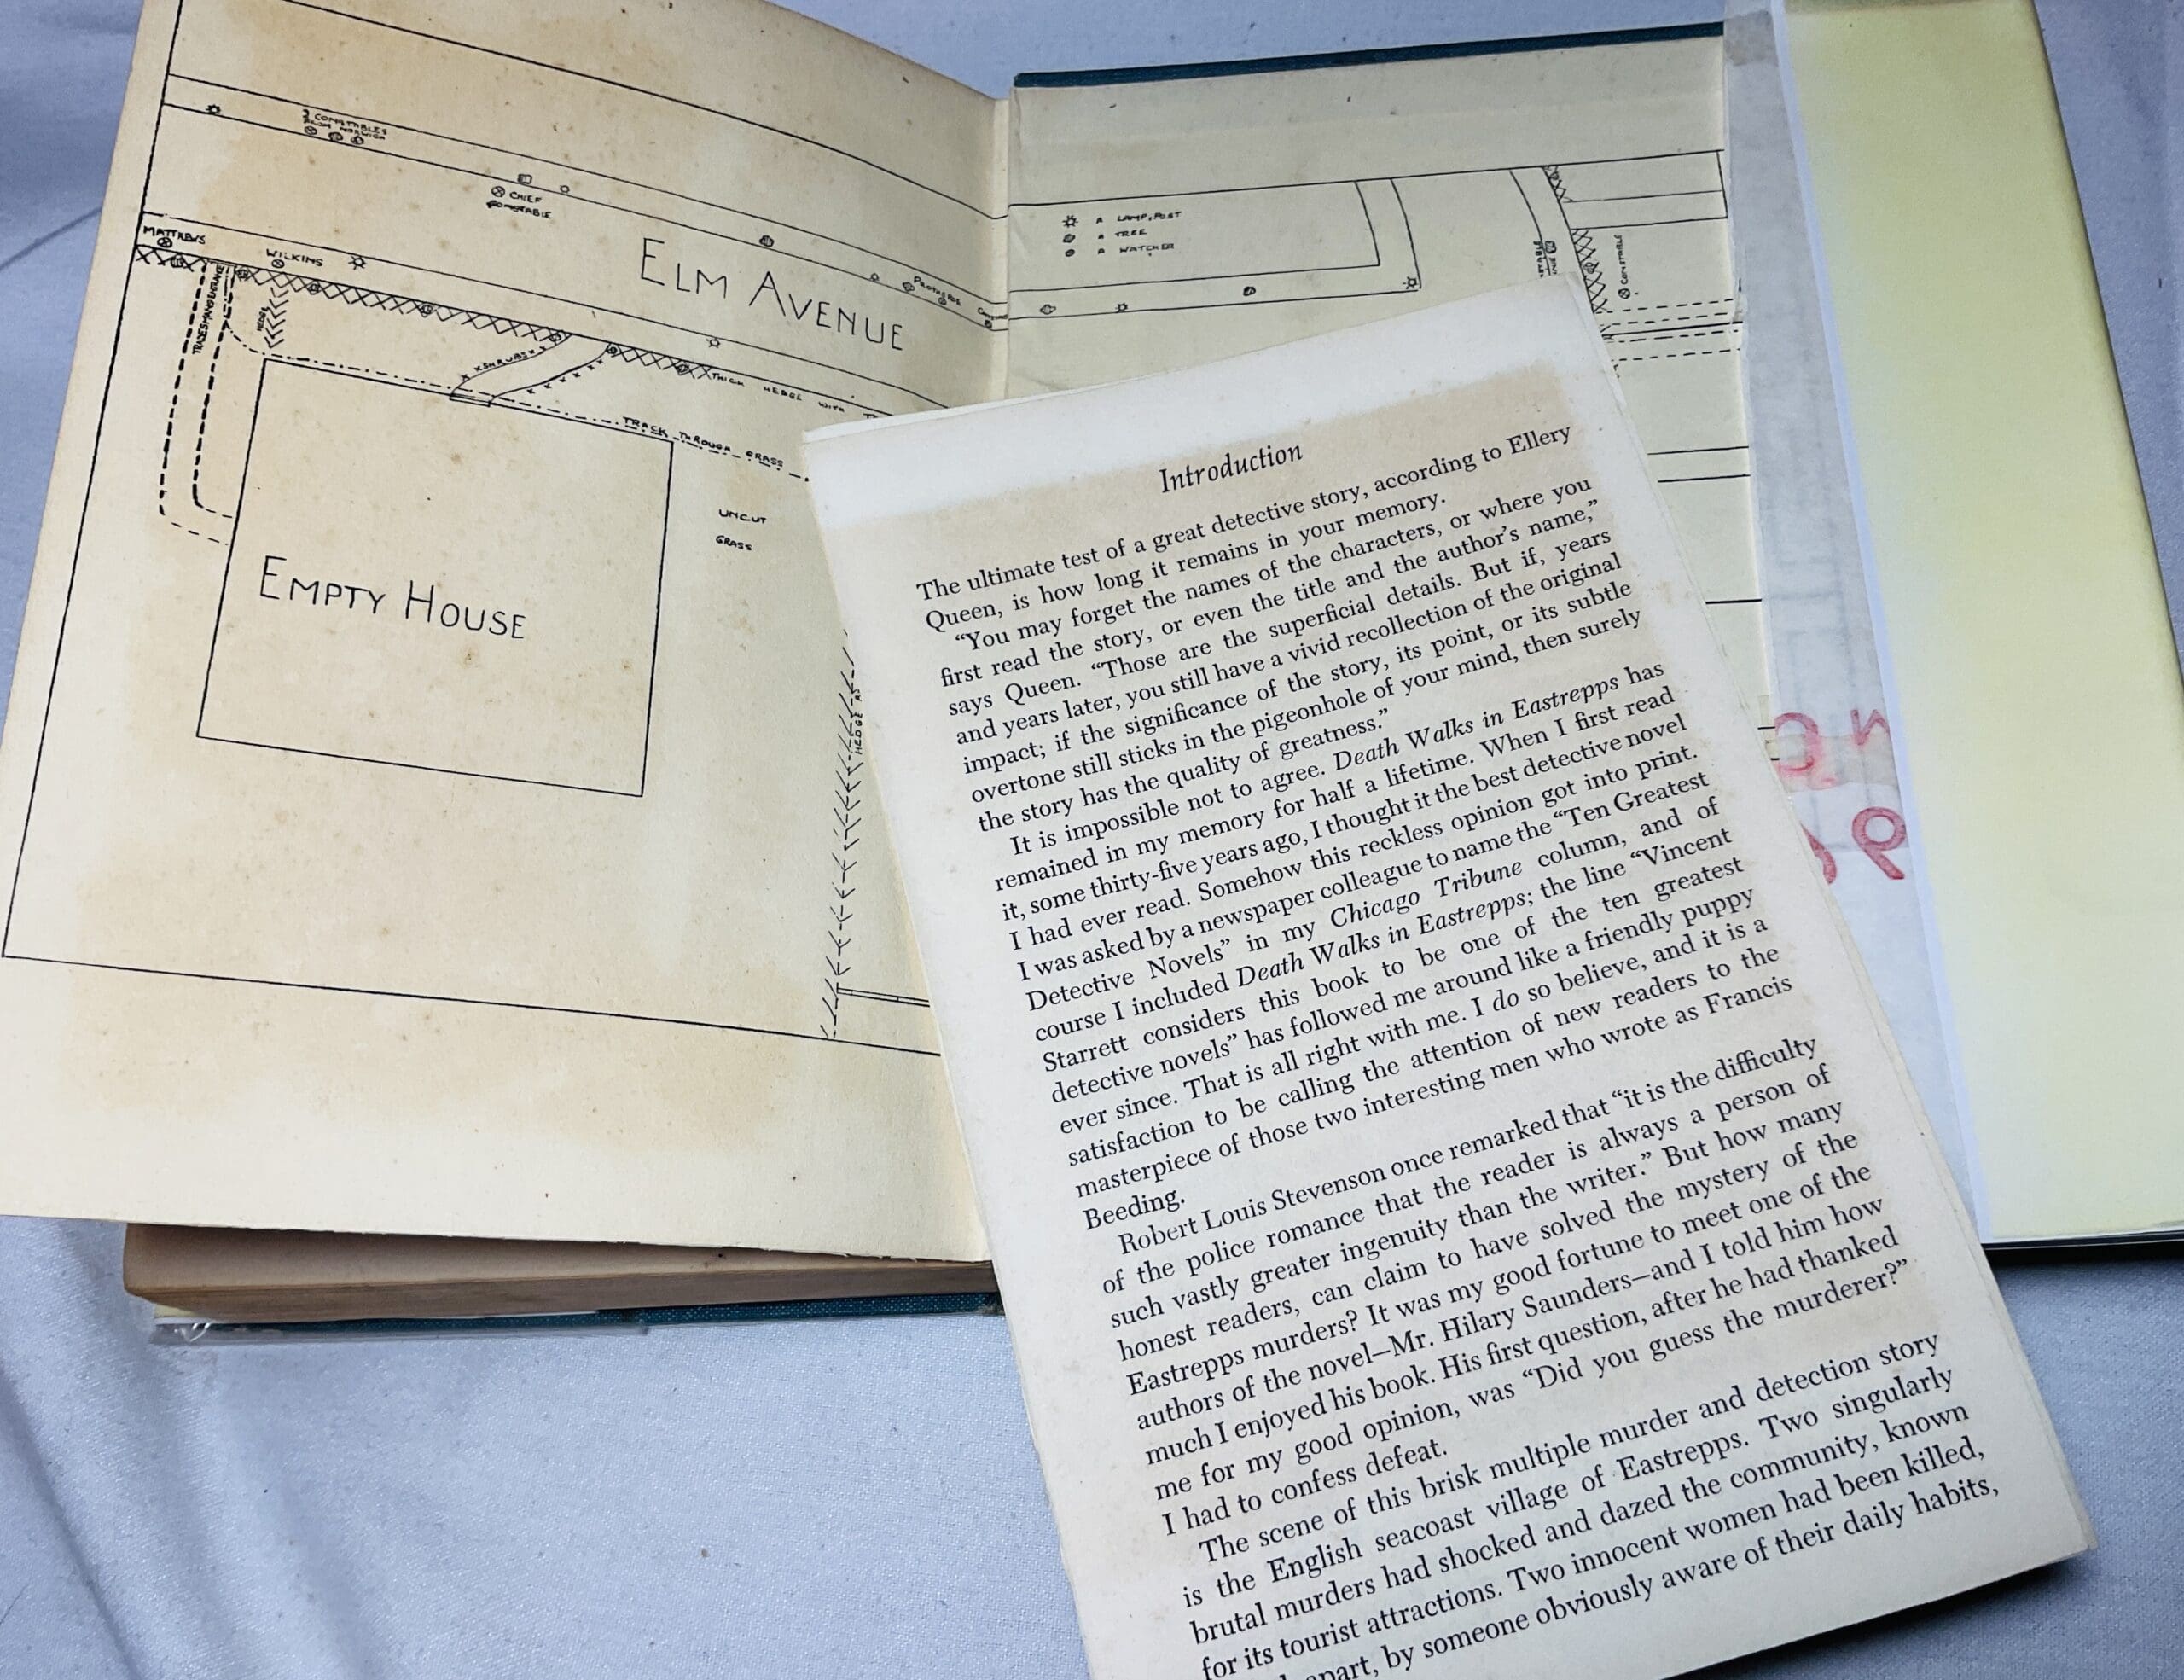 3 CONSTABLES
FROM NORWICH
CHIEF
CONSTABLE
MATTHEWS
WILKINS
ELM AVENUE
PROTHEROE
TRADESMANS ENTRANCE
HEDGE
SHRUBS
THICK HEDGE WITH
TRACK THROUGH GRASS
UNCUT
GRASS
EMPTY HOUSE
HEDGE AS
A LAMP.POST
A TREE
A WATCHER
CONSTABLE
Introduction
The ultimate test of a great detective story, according to Ellery
Queen, is how long it remains in your memory.
“You may forget the names of the characters, or where you
first read the story, or even the title and the author’s name,”
says Queen. “Those are the superficial details. But if, years
and years later, you still have a vivid recollection of the original
impact; if the significance of the story, its point, or its subtle
overtone still sticks in the pigeonhole of your mind, then surely
the story has the quality of greatness.”
It is impossible not to agree. Death Walks in Eastrepps has
remained in my memory for half a lifetime. When I first read
it, some thirty-five years ago, I thought it the best detective novel
I had ever read. Somehow this reckless opinion got into print.
I was asked by a newspaper colleague to name the “Ten Greatest
Detective Novels” in my Chicago Tribune column, and of
course I included Death Walks in Eastrepps; the line “Vincent
Starrett considers this book to be one of the ten greatest
detective novels” has followed me around like a friendly puppy
ever since. That is all right with me. I do so believe, and it is a
satisfaction to be calling the attention of new readers to the
masterpiece of those two interesting men who wrote as Francis
Beeding.
Robert Louis Stevenson once remarked that “it is the difficulty
of the police romance that the reader is always a person of
such vastly greater ingenuity than the writer.” But how many
honest readers, can claim to have solved the mystery of the
Eastrepps murders? It was my good fortune to meet one of the
authors of the novel—Mr. Hilary Saunders—and I told him how
much I enjoyed his book. His first question, after he had thanked
me for my good opinion, was “Did you guess the murderer?”
I had to confess defeat.
The scene of this brisk multiple murder and detection story
is the English seacoast village of Eastrepps. Two singularly
brutal murders had shocked and dazed the community, known
for its tourist attractions. Two innocent women had been killed,
apart, by someone obviously aware of their daily habits,